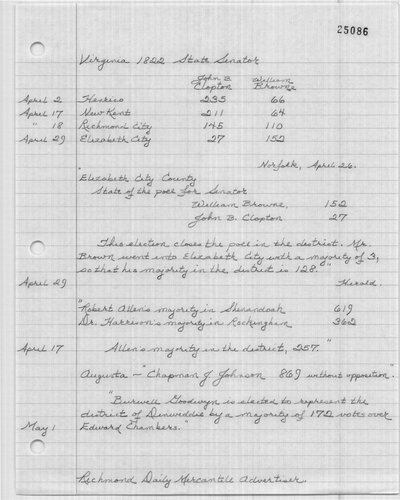 25086
Virginia 1822 State Senator
John B. Clopton William Browne
April 2 Henrico 235 66
April 17 New Kent 211 64
" 18 Richmond City 145 110
April 29 Elizabeth City 27 152
Norfolk, April 26.
"Elizabeth City County
State of the poll for Senator
William Browne, 152
John B. Clopton 27
This election closes the poll in the district. Mr.
Brown went into Elizabeth City with a majority of 3,
so that his majority in the district is 128."
April 29 Herald.
"Robert Allen's majority in Shenandoah 619
Dr. Harrison's majority in Rockingham 362
April 17 Allen's majority in the district, 257."
Augusta - "Chapman J. Johnson 869 without opposition."
"Burwell Goodwyn is elected to represent the
district of Dinwiddie by a majority of 172 votes over
May 1 Edward Chambers."
Richmond Daily Mercantile Advertiser.